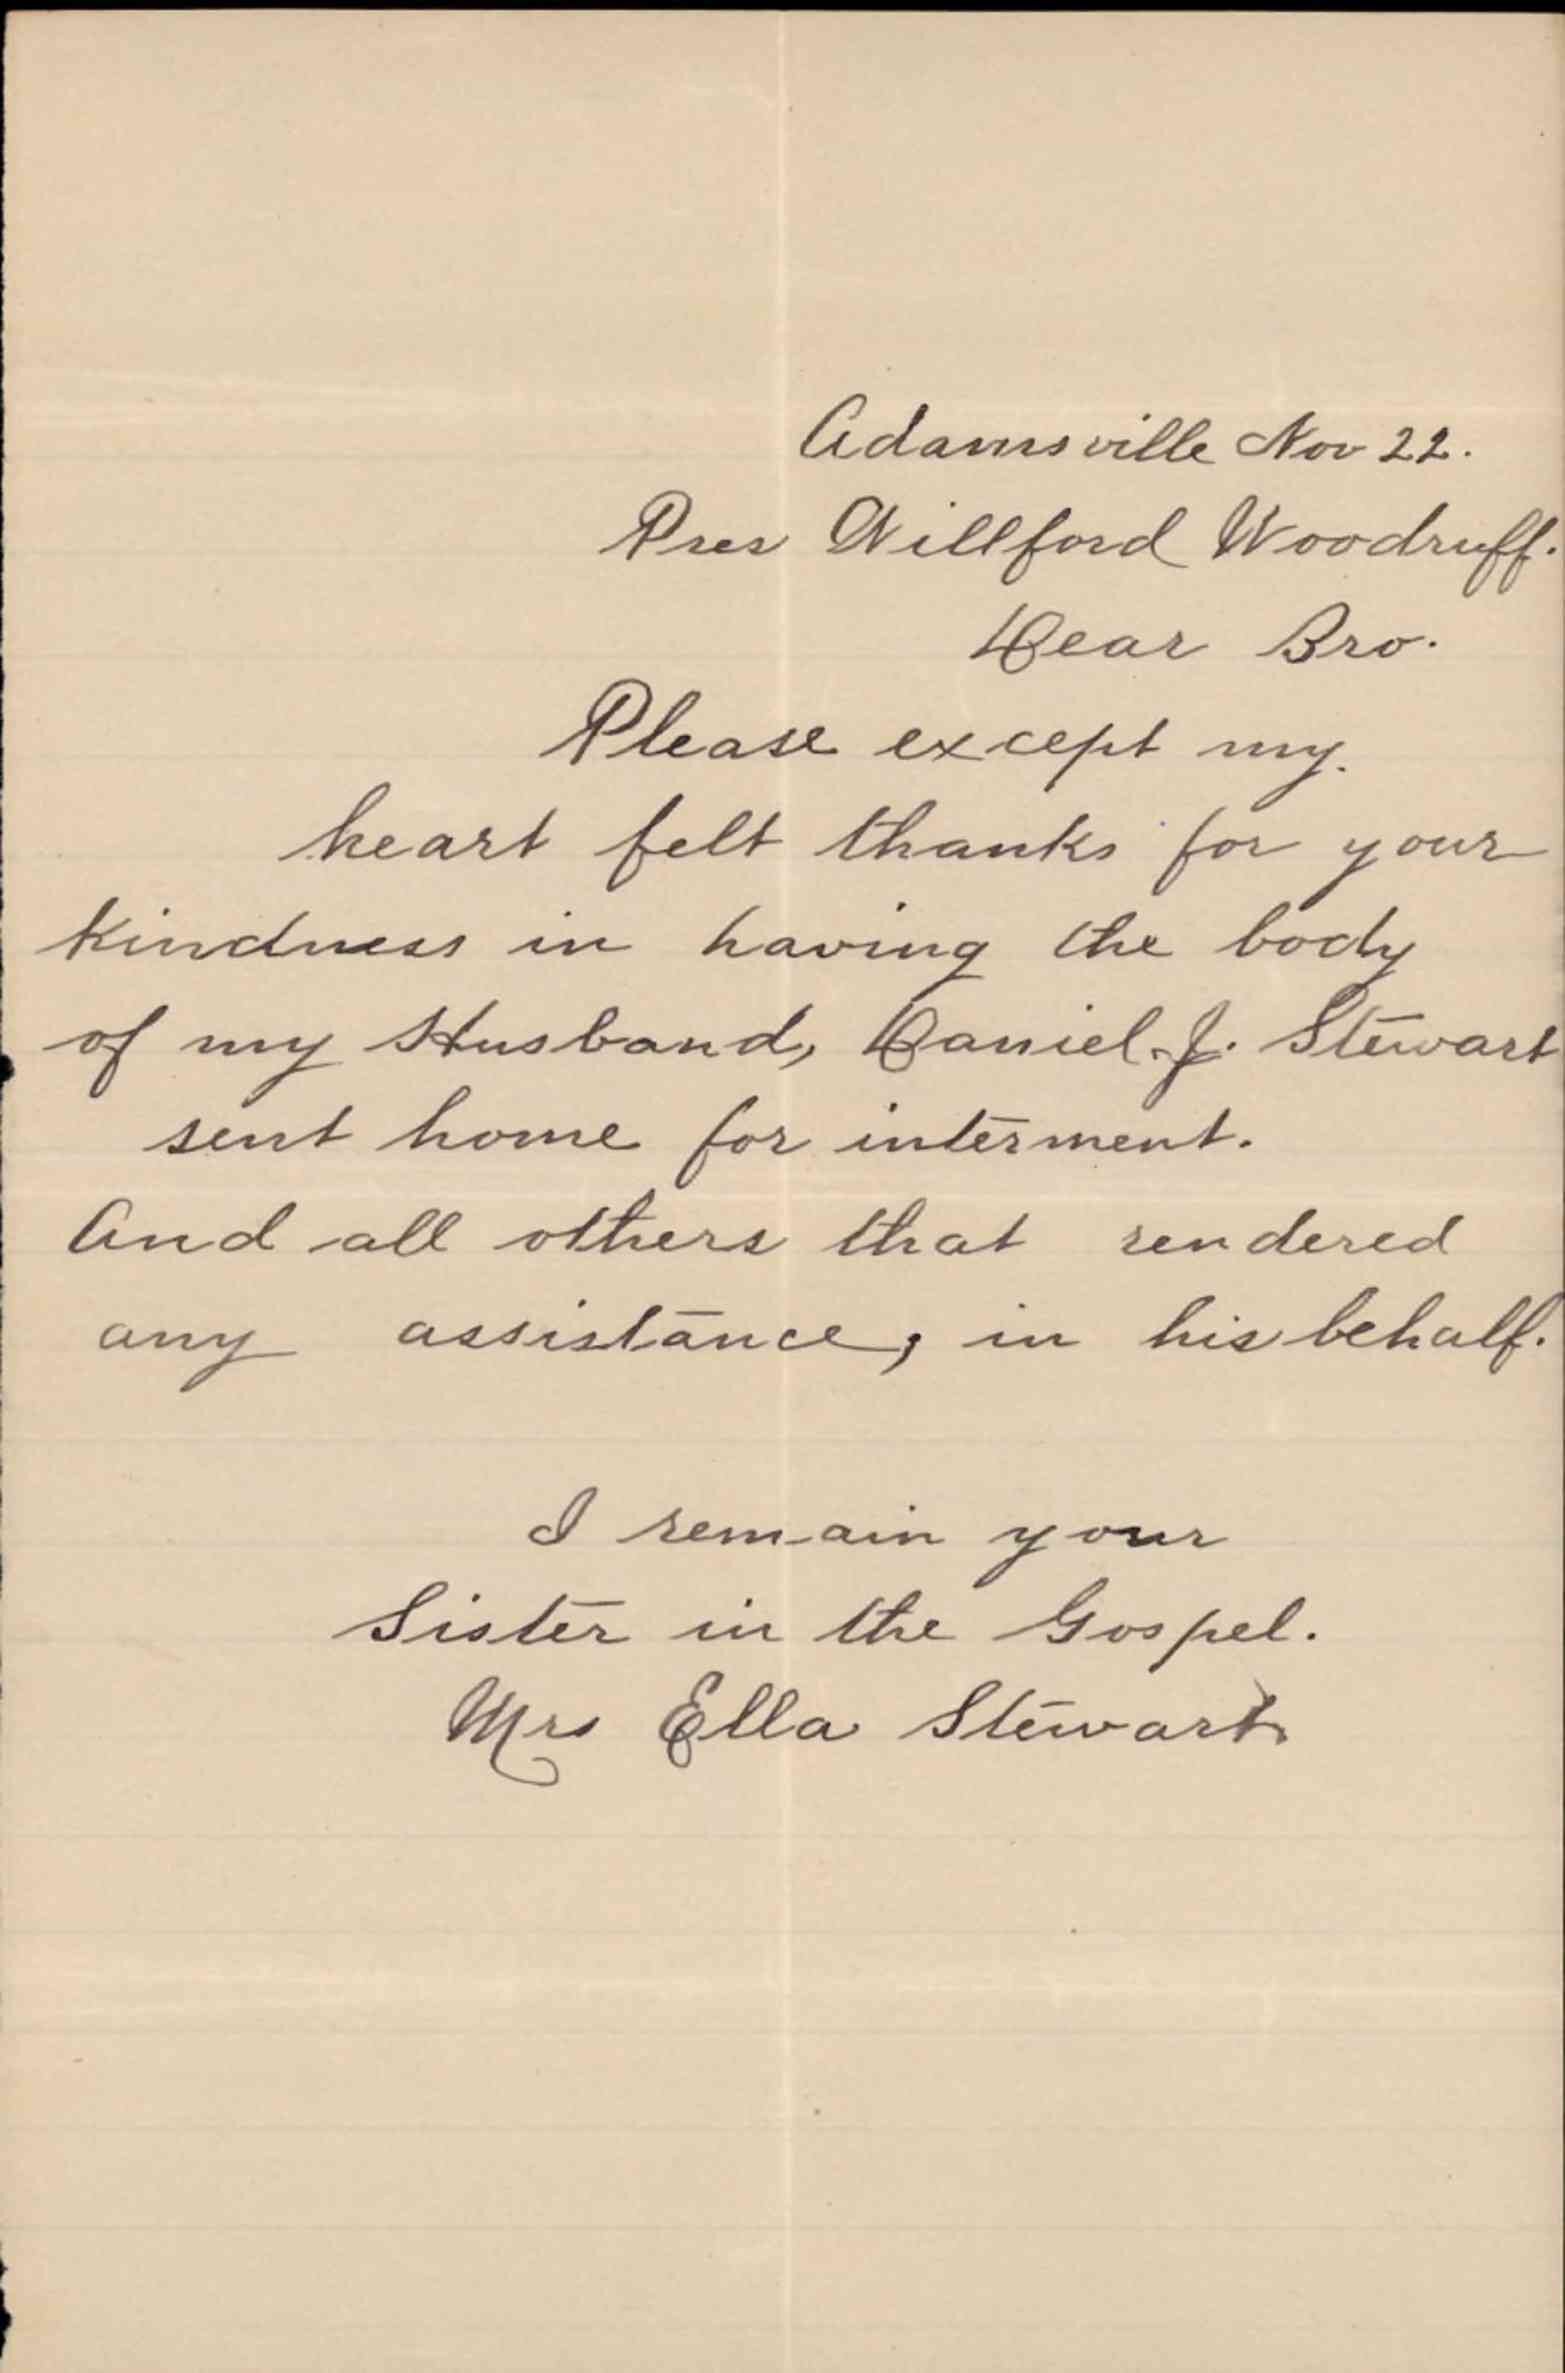 Adamsville Nov 22.
Pres Willford Woodruff.
Dear Bro.
Please except my.
heart felt thanks for your
kindness in having the body
of my Husband, Daniel. J. Stewart
sent home for interment.
And all others that rendered
any assistance, in his behalf.
I remain your
Sister in the Gospel.
Mrs Ella Stewart